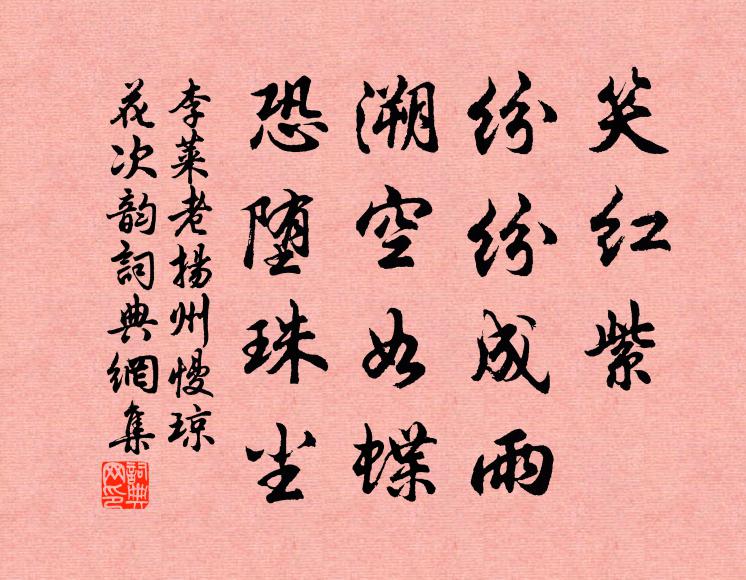 笑红紫
纷纷成雨
溯空如蝶
恐堕珠尘
李莱老揚州慢琼
花次韵詞典網集
詞典
网印